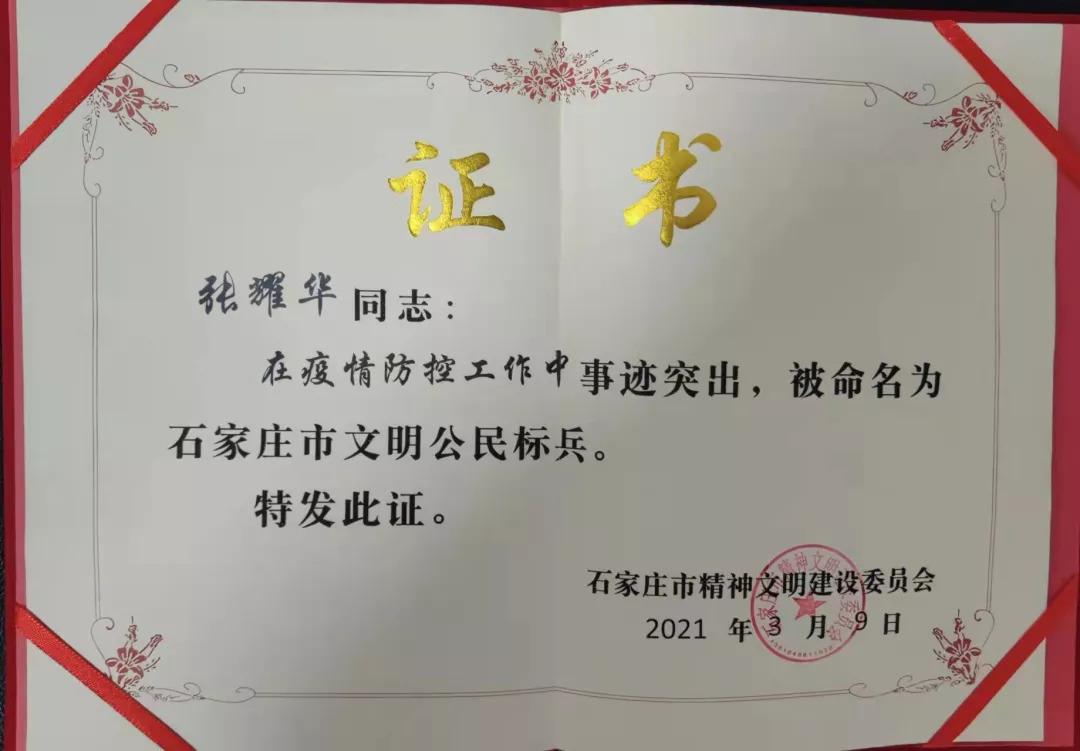 证书
张耀华同志：
在疫情防控工作中事迹突出，被命名为
石家庄市文明公民标兵。
特发此证。
石家庄市精神文明建设委员会
2021 年 3 月 9 日
石家庄市精神文明建设委员会